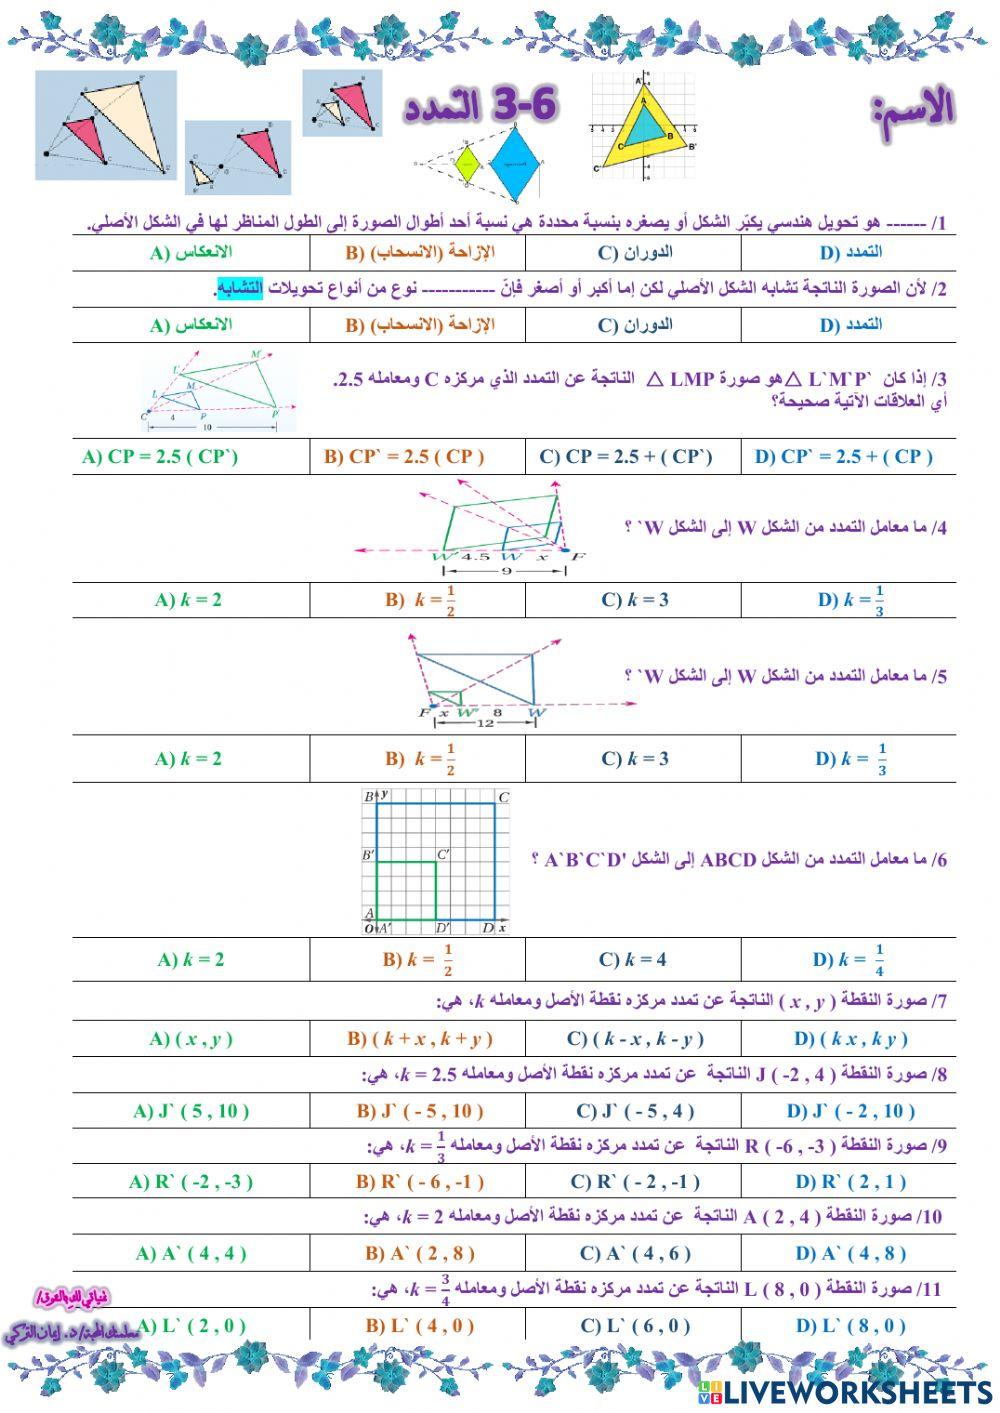 الاسم:
3-6 التمدد
1/ ------ هو تحويل هندسي يكبّر الشكل أو يصغره بنسبة محددة هي نسبة أحد أطوال الصورة إلى الطول المناظر لها في الشكل الأصلي.
A) الانعكاس B) الإزاحة (الانسحاب) C) الدوران D) التمدد
2/ لأن الصورة الناتجة تشابه الشكل الأصلي لكن إما أكبر أو أصغر فإنّ ----------- نوع من أنواع تحويلات التشابه.
A) الانعكاس B) الإزاحة (الانسحاب) C) الدوران D) التمدد
3/ إذا كان △ L`M`P` هو صورة △ LMP الناتجة عن التمدد الذي مركزه C ومعامله 2.5.
أي العلاقات الآتية صحيحة؟
L' M' L M C P P' 4 10
A) CP = 2.5 ( CP`) B) CP` = 2.5 ( CP ) C) CP = 2.5 + ( CP`) D) CP` = 2.5 + ( CP )
4/ ما معامل التمدد من الشكل W إلى الشكل W` ؟
W' 4.5 W x F
9
A) k = 2 B) k = 1/2 C) k = 3 D) k = 1/3
5/ ما معامل التمدد من الشكل W إلى الشكل W` ؟
F x W' 8 W
12
A) k = 2 B) k = 1/2 C) k = 3 D) k = 1/3
6/ ما معامل التمدد من الشكل ABCD إلى الشكل A`B`C`D' ؟
B y C
B' C'
A
O A' D' D x
A) k = 2 B) k = 1/2 C) k = 4 D) k = 1/4
7/ صورة النقطة ( x , y ) الناتجة عن تمدد مركزه نقطة الأصل ومعامله k، هي:
A) ( x , y ) B) ( k + x , k + y ) C) ( k - x , k - y ) D) ( k x , k y )
8/ صورة النقطة J ( -2 , 4 ) الناتجة عن تمدد مركزه نقطة الأصل ومعامله k = 2.5، هي:
A) J` ( 5 , 10 ) B) J` ( - 5 , 10 ) C) J` ( - 5 , 4 ) D) J` ( - 2 , 10 )
9/ صورة النقطة R ( -6 , -3 ) الناتجة عن تمدد مركزه نقطة الأصل ومعامله k = 1/3، هي:
A) R` ( -2 , -3 ) B) R` ( - 6 , -1 ) C) R` ( - 2 , -1 ) D) R` ( 2 , 1 )
10/ صورة النقطة A ( 2 , 4 ) الناتجة عن تمدد مركزه نقطة الأصل ومعامله k = 2، هي:
A) A` ( 4 , 4 ) B) A` ( 2 , 8 ) C) A` ( 4 , 6 ) D) A` ( 4 , 8 )
11/ صورة النقطة L ( 8 , 0 ) الناتجة عن تمدد مركزه نقطة الأصل ومعامله k = 3/4، هي:
A) L` ( 2 , 0 ) B) L` ( 4 , 0 ) C) L` ( 6 , 0 ) D) L` ( 8 , 0 )
معلمتك المحبة/ د. إيمان التركي
LIVEWORKSHEETS